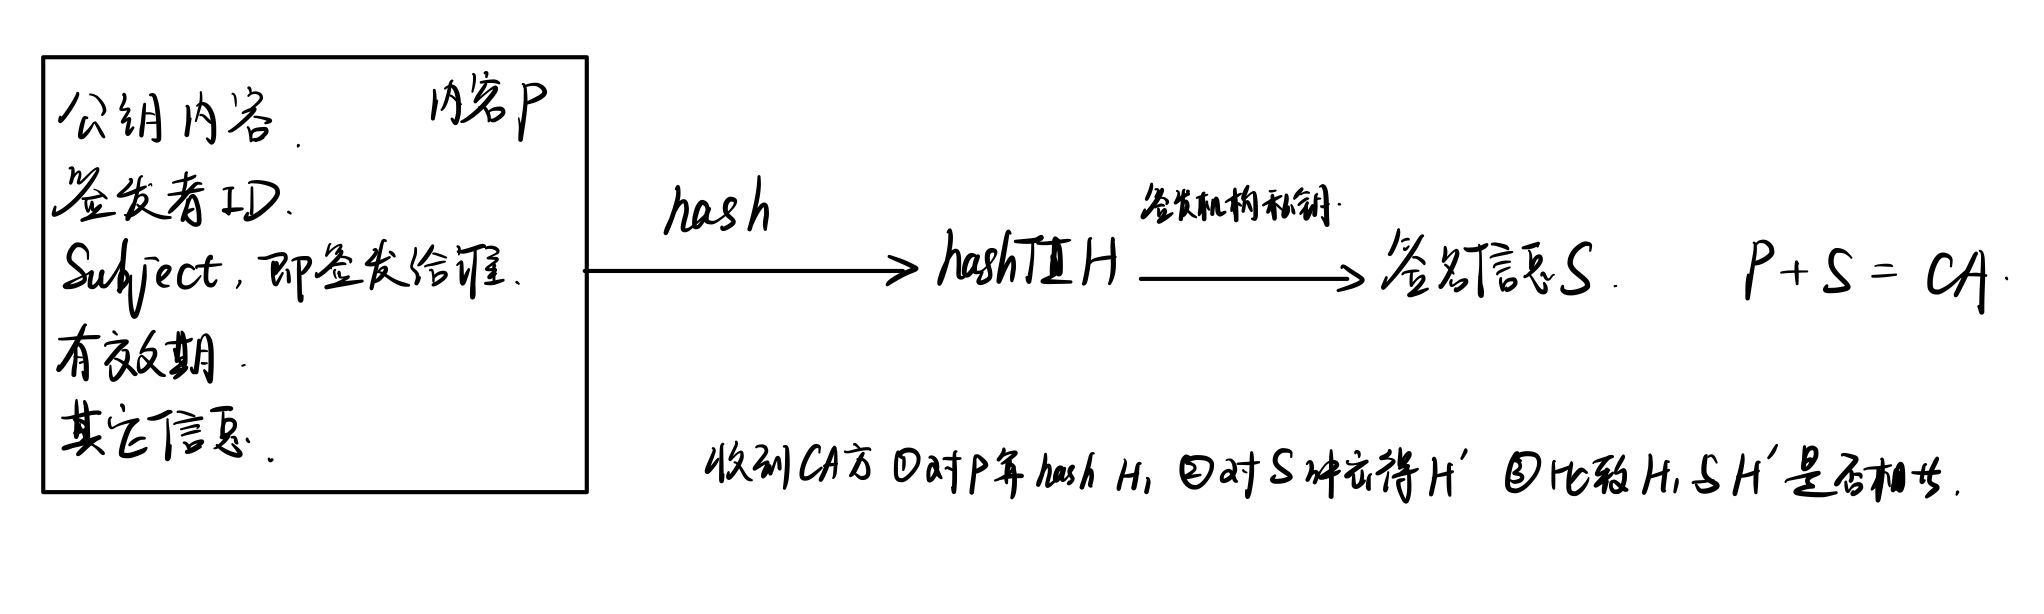 内容P
公钥内容.
签发者ID.
Subject, 即签发给谁.
有效期.
其它信息.
hash
hash值H
签发机构私钥.
签名信息S.
P+S=CA.
收到CA方 ①对P再hash H₁ ②对S 得H′ ③比较H₁与H′是否相等.